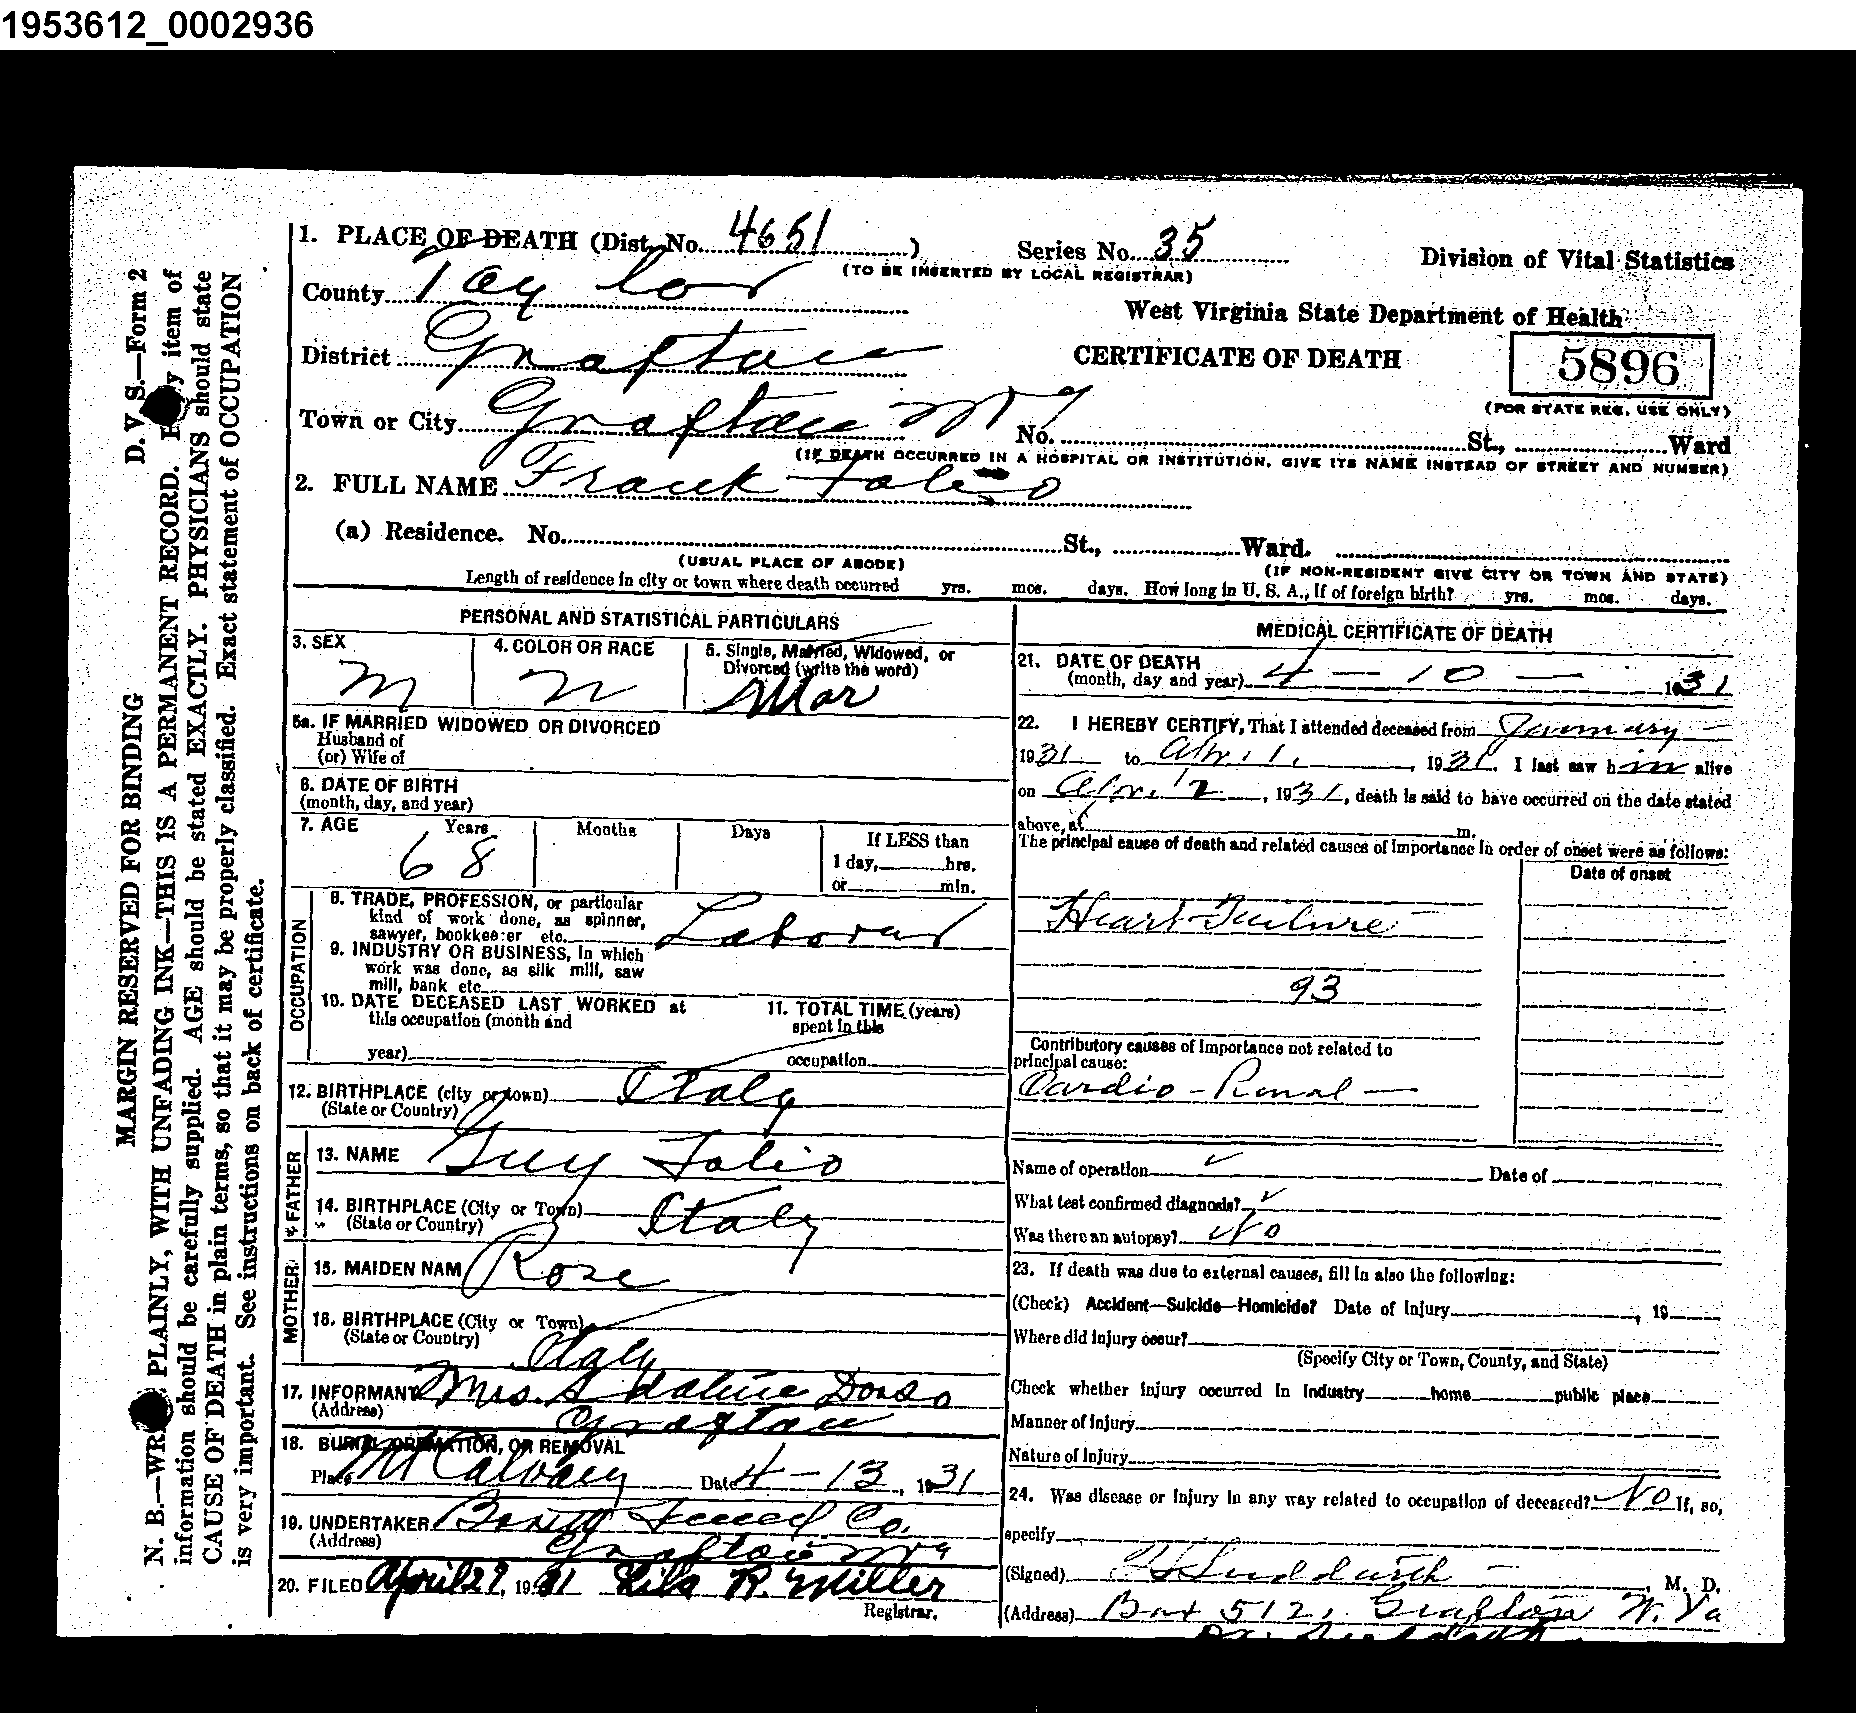 1953612_0002936
MARGIN RESERVED FOR BINDING D. V. S.—Form 2
N. B.—WRITE PLAINLY, WITH UNFADING INK—THIS IS A PERMANENT RECORD. Every item of
information should be carefully supplied. AGE should be stated EXACTLY. PHYSICIANS should state
CAUSE OF DEATH in plain terms, so that it may be properly classified. Exact statement of OCCUPATION
is very important. See instructions on back of certificate.
1. PLACE OF DEATH (Dist. No. 4651 )
Series No. 35
(TO BE INSERTED BY LOCAL REGISTRAR)
Division of Vital Statistics
County Taylor
West Virginia State Department of Health
District Grafton
CERTIFICATE OF DEATH
5896
(FOR STATE REG. USE ONLY)
Town or City Grafton
No. St., Ward
(IF DEATH OCCURRED IN A HOSPITAL OR INSTITUTION, GIVE ITS NAME INSTEAD OF STREET AND NUMBER)
2. FULL NAME Frank Folio
(a) Residence. No. St., Ward.
(USUAL PLACE OF ABODE) (IF NON-RESIDENT GIVE CITY OR TOWN AND STATE)
Length of residence in city or town where death occurred yrs. mos. days. How long in U. S. A., if of foreign birth? yrs. mos. days.
PERSONAL AND STATISTICAL PARTICULARS
3. SEX
M
4. COLOR OR RACE
5. Single, Married, Widowed, or
Divorced (write the word)
Mar
5a. IF MARRIED WIDOWED OR DIVORCED
Husband of
(or) Wife of
6. DATE OF BIRTH
(month, day, and year)
7. AGE Years Months Days If LESS than
68
1 day, hrs.
or min.
OCCUPATION
8. TRADE, PROFESSION, or particular
kind of work done, as spinner,
sawyer, bookkeeper etc. Laborer
9. INDUSTRY OR BUSINESS, in which
work was done, as silk mill, saw
mill, bank etc.
10. DATE DECEASED LAST WORKED at
this occupation (month and
year)
11. TOTAL TIME (years)
spent in this
occupation
12. BIRTHPLACE (city or town) Italy
(State or Country)
FATHER
13. NAME Guy Folio
14. BIRTHPLACE (City or Town) Italy
(State or Country)
MOTHER
15. MAIDEN NAM Rose
16. BIRTHPLACE (City or Town)
(State or Country) Italy
17. INFORMANT Mrs.
(Address) Grafton
18. BURIAL, CREMATION, OR REMOVAL
Place Mt Calvary Date 4-13, 1931
19. UNDERTAKER Co.
(Address) Grafton
20. FILED April 27, 1931 Lila R. Miller
Registrar.
MEDICAL CERTIFICATE OF DEATH
21. DATE OF DEATH
(month, day and year) 4 - 10 - 1931
22. I HEREBY CERTIFY, That I attended deceased from January
1931 to April, 1931. I last saw him alive
on Apr. 2, 1931, death is said to have occurred on the date stated
above, at m.
The principal cause of death and related causes of importance in order of onset were as follows:
Date of onset
Heart Failure
93
Contributory causes of importance not related to
principal cause:
Cardio-Renal
Name of operation Date of
What test confirmed diagnosis?
Was there an autopsy? No
23. If death was due to external causes, fill in also the following:
(Check) Accident—Suicide—Homicide? Date of injury , 19
Where did injury occur?
(Specify City or Town, County, and State)
Check whether injury occurred in industry home public place
Manner of injury
Nature of injury
24. Was disease or injury in any way related to occupation of deceased? No If, so,
specify
(Signed) , M. D.
(Address) Box 512, Grafton W. Va